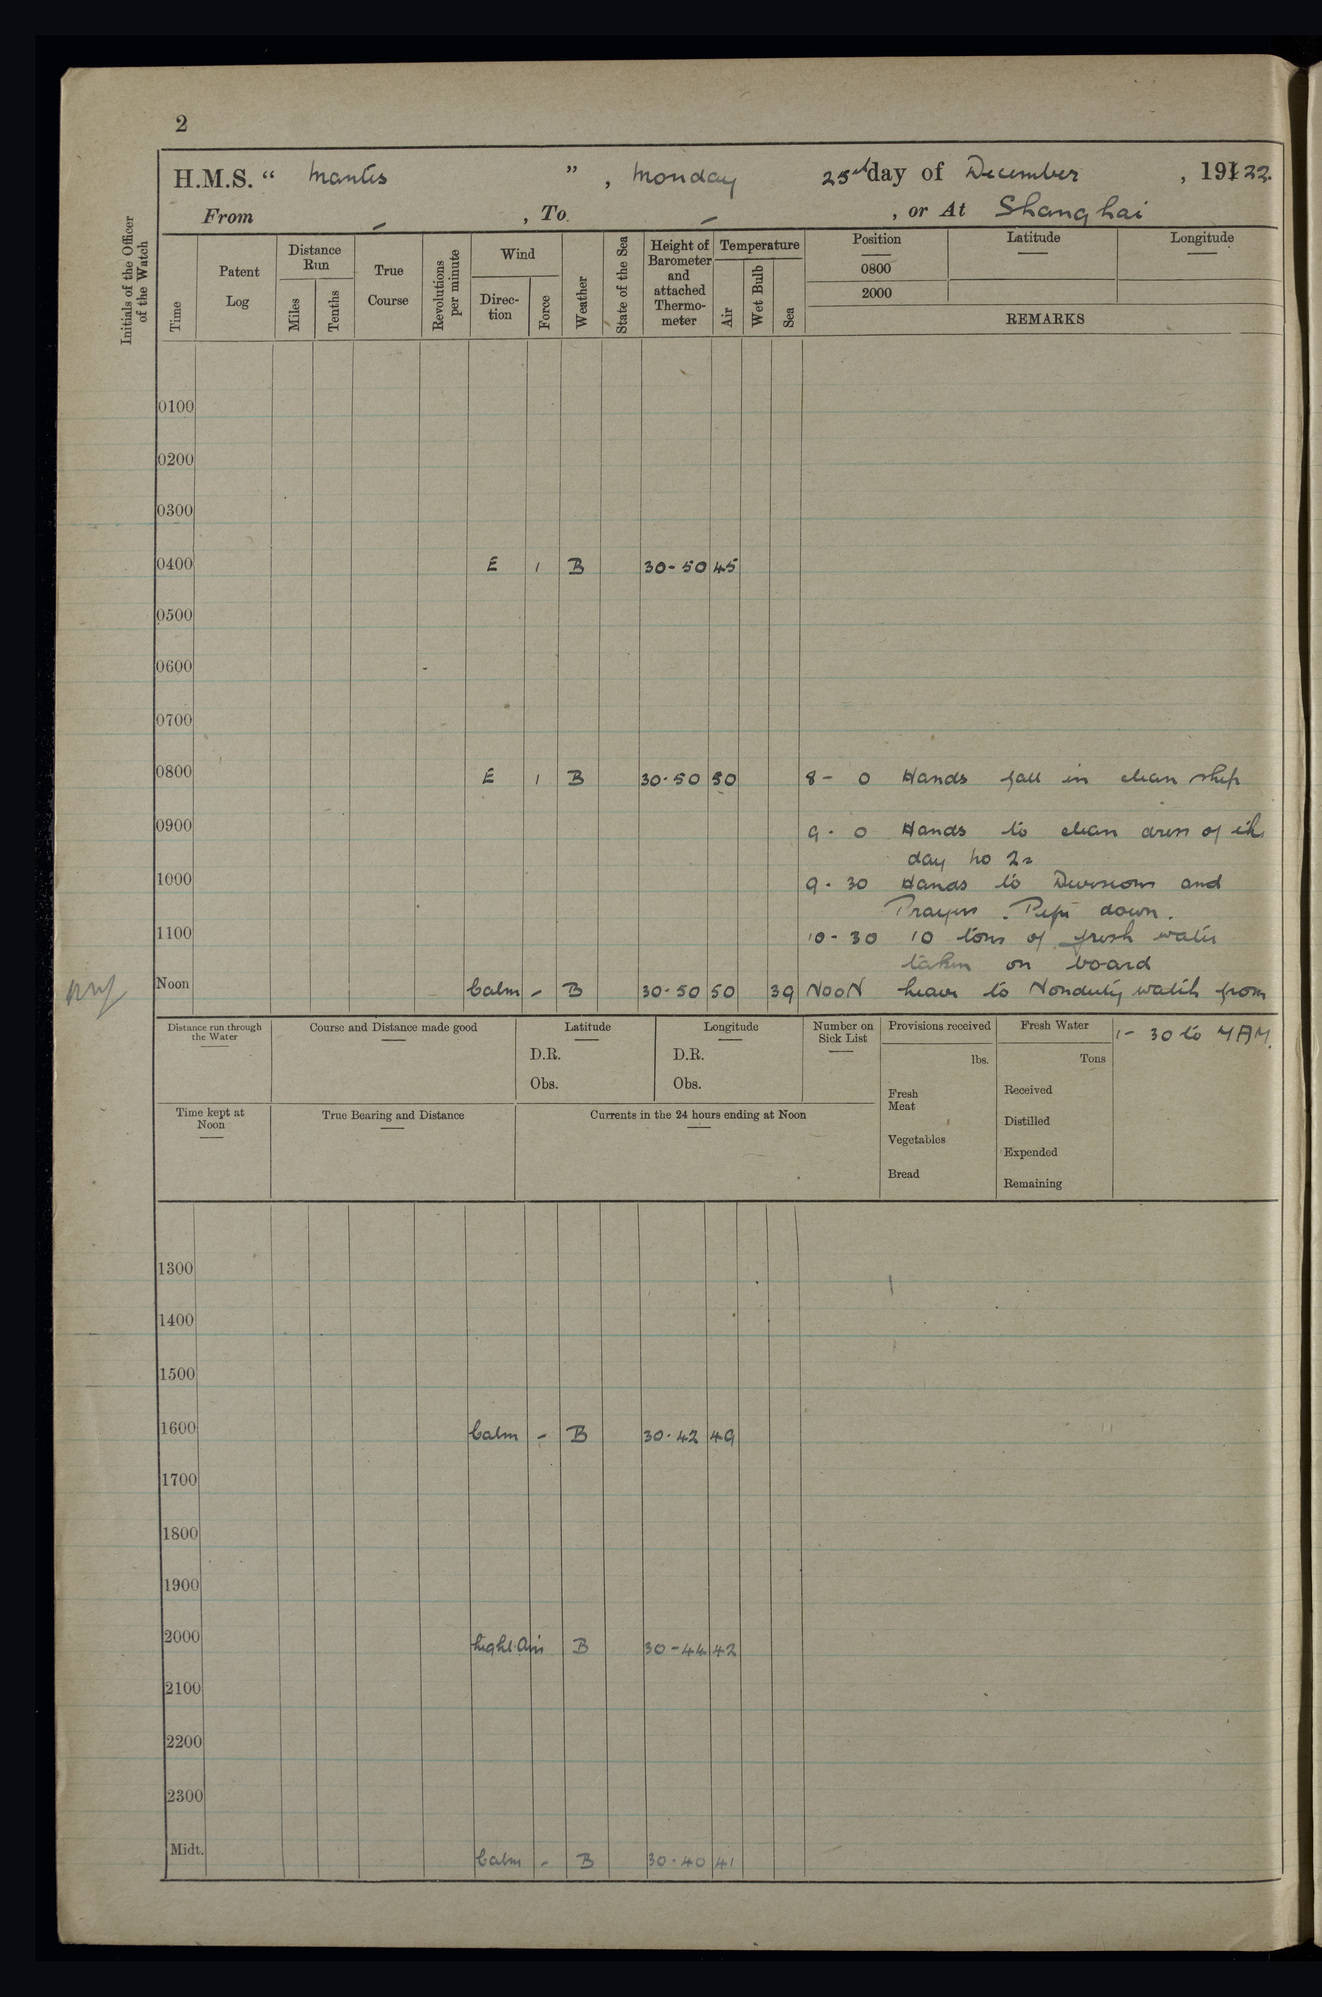 2
H.M.S. “ Mantis ” , Monday 25th day of December , 19122.
From – , To – , or At Shanghai
Initials of the Officer of the Watch
Time
Patent Log
Distance Run
Miles
Tenths
True Course
Revolutions per minute
Wind
Direc-tion
Force
Weather
State of the Sea
Height of Barometer and attached Thermo-meter
Temperature
Air
Wet Bulb
Sea
Position
Latitude
Longitude
0800
2000
REMARKS
0100
0200
0300
0400 E 1 B 30-50 45
0500
0600
0700
0800 E 1 B 30.50 50 8- 0 Hands fall in clean ship
0900 9. 0 Hands to clean dress of the
day No 2s
1000 9.30 Hands to Divisions and
Prayers. Pipe down.
1100 10-30 10 tons of fresh water
taken on board
Noon Calm - B 30-50 50 39 NOON leave to Nonduty watch from
1- 30 to 7 AM.
Distance run through the Water
Course and Distance made good
Latitude
D.R.
Obs.
Longitude
D.R.
Obs.
Number on Sick List
Provisions received
lbs.
Fresh Meat
Vegetables
Bread
Fresh Water
Tons
Received
Distilled
Expended
Remaining
Time kept at Noon
True Bearing and Distance
Currents in the 24 hours ending at Noon
1300
1400
1500
1600 Calm - B 30.42 49
1700
1800
1900
2000 Light Air B 30-44 42
2100
2200
2300
Midt. Calm - B 30.40 41